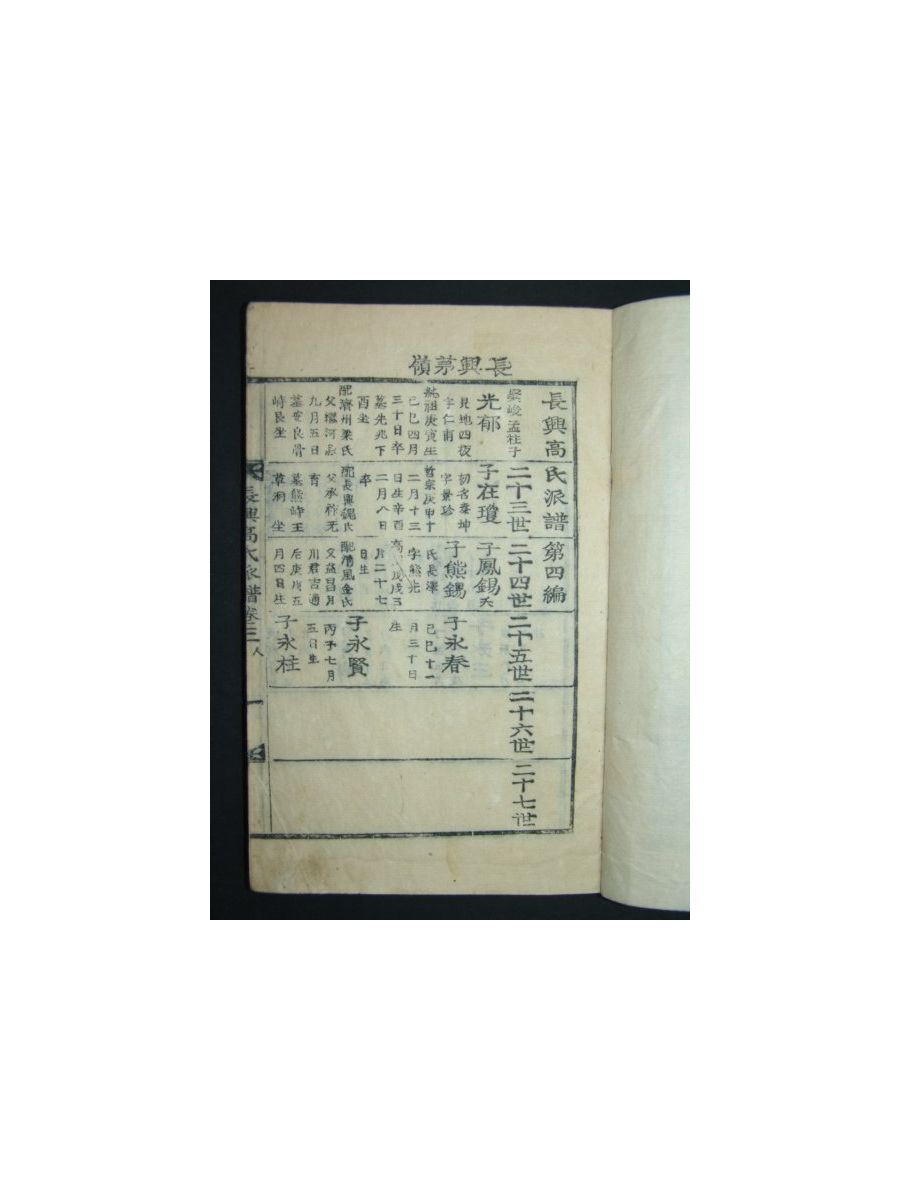 長興茅嶺
長興高氏派譜第四編
二十三世
二十四世
二十五世
二十六世
二十七世
峻孟柱子
光郁
見地四夜
字仁甫
純祖庚寅生
己巳四月
三十日卒
墓先兆下
酉坐
配濟州梁氏
父 河忌
九月五日
墓 良骨
峙艮坐
子在瓊
初名 坤
字景珍
哲宗庚申十
二月十三
日生辛酉
二月八日
卒
配長興魏氏
父承
育
墓熊峙王
洞 坐
子鳳錫夭
子熊錫
氏長澤
字熊光
高 戊戌三
月二十七
日生
配清風金氏
父益昌
川君吉通
后庚戌五
月四日生
子永春
己巳十一
月三十日
生
子永賢
丙子七月
五日生
子永柱
長興高氏派譜卷三 人 一